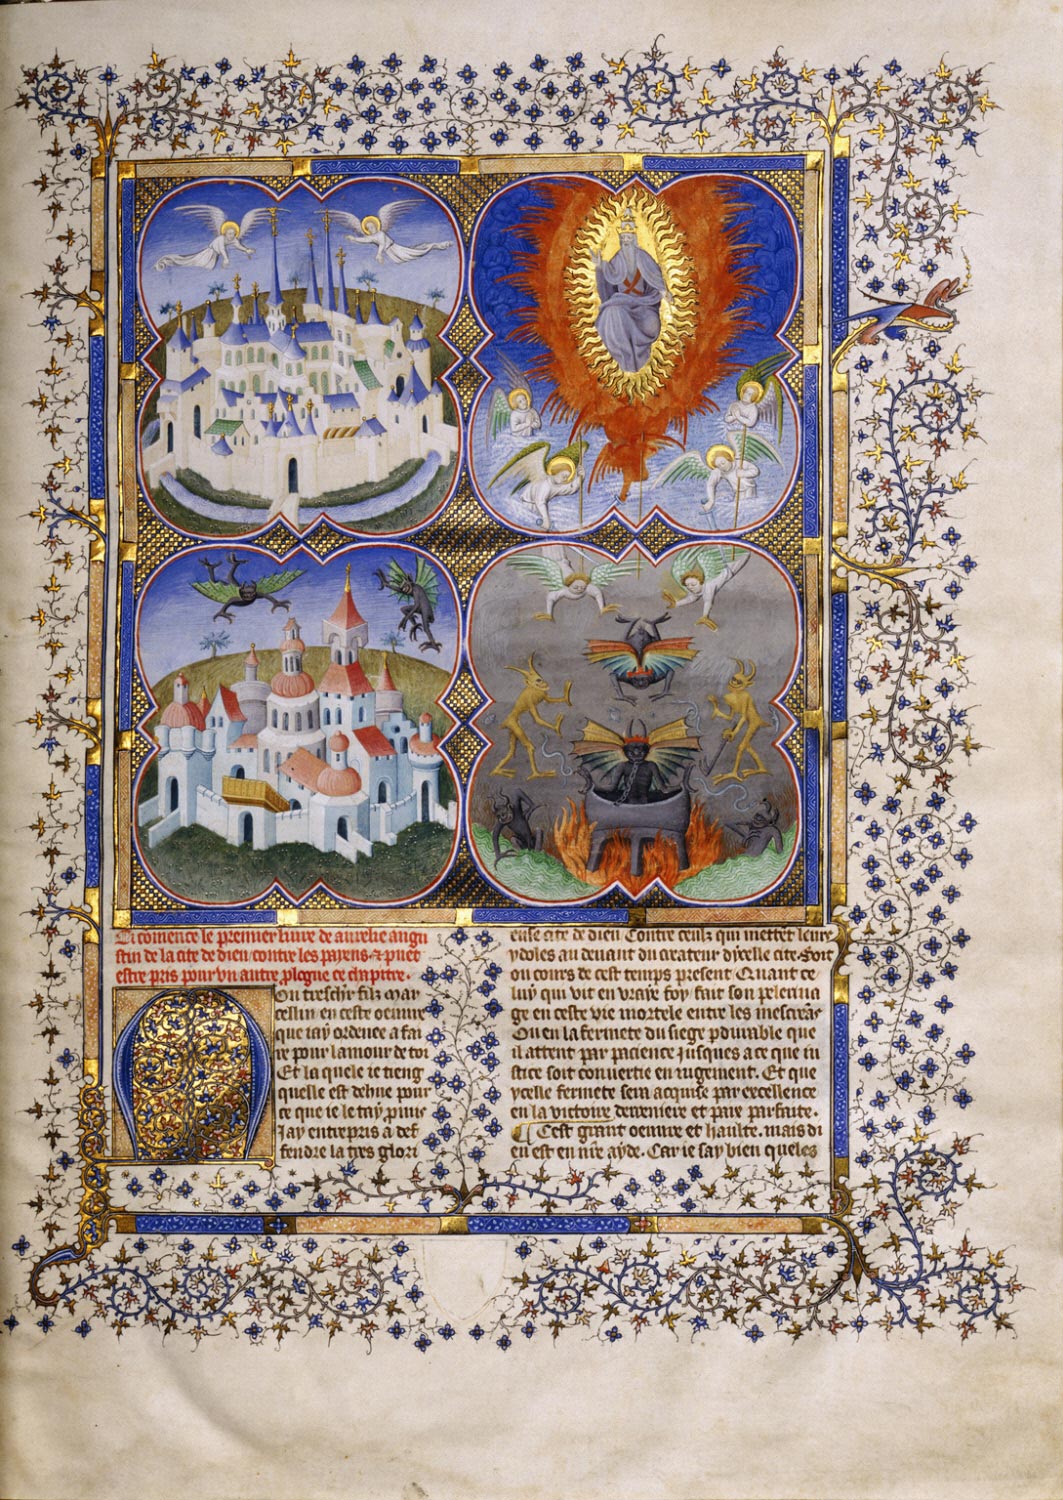 Ci comence le premier livre de aurelie augu
stin de la cite de dieu contre les payens. et puet
estre pris pour vn autre plogue ce chapitre.
Mou treschr filz mar
cellin en ceste oeuure
que iay ordence a fai
re pour lamour de toi
Et la quele ie tieng
quelle est dehue pour
ce que ie le tay pmis
Jay entrepris a def
fendre la tres glori
euse cite de dieu Contre ceulz qui mettet leurs
ydoles au deuant du createur dycelle cite. Soit
ou cours de cest temps present Quant ce
luy qui vit en vraye foy fait son pelerina
ge en ceste vie mortele entre les mescreas
Ou en la fermete du siege pdurable que
il attent par pacience Jusques a ce que iu
stice soit conuertie en iugement. Et que
ycelle fermete sera acquise par excellence
en la victoire derreniere et paix parfaite.
Cest grant oeuure et haulte. mais di
eu est en nre ayde. Car ie say bien queles